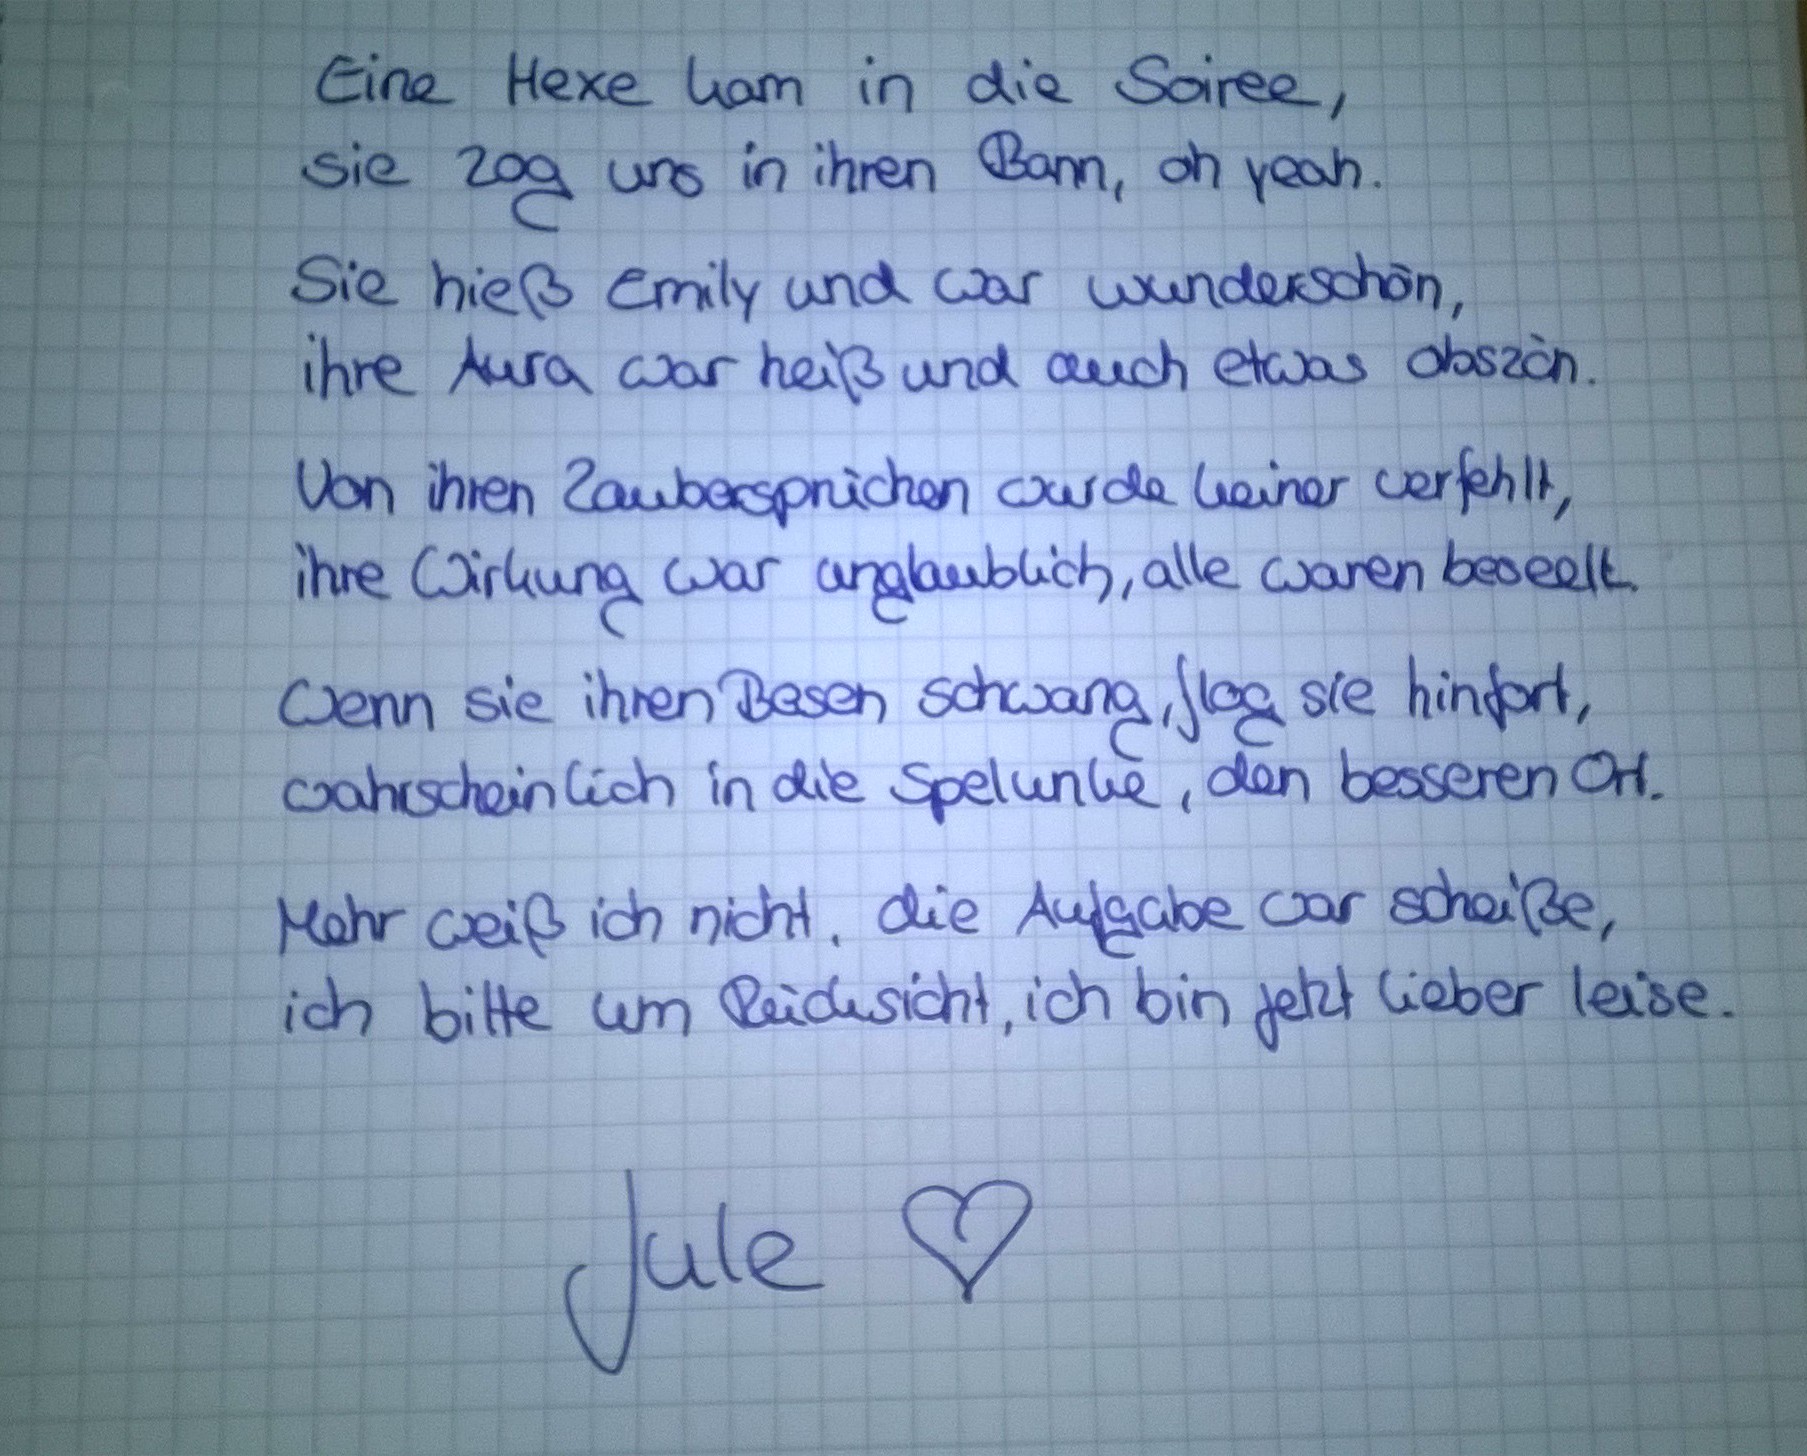 Eine Hexe kam in die Soiree,
sie zog uns in ihren Bann, oh yeah.
Sie hieß Emily und war wunderschön,
ihre Aura war heiß und auch etwas obszön.
Von ihren Zaubersprüchen wurde keiner verfehlt,
ihre Wirkung war unglaublich, alle waren beseelt.
Wenn sie ihren Besen schwang, flog sie hinfort,
wahrscheinlich in die Spelunke, den besseren Ort.
Mehr weiß ich nicht, die Aufgabe war scheiße,
ich bitte um Rücksicht, ich bin jetzt lieber leise.
Jule ♡